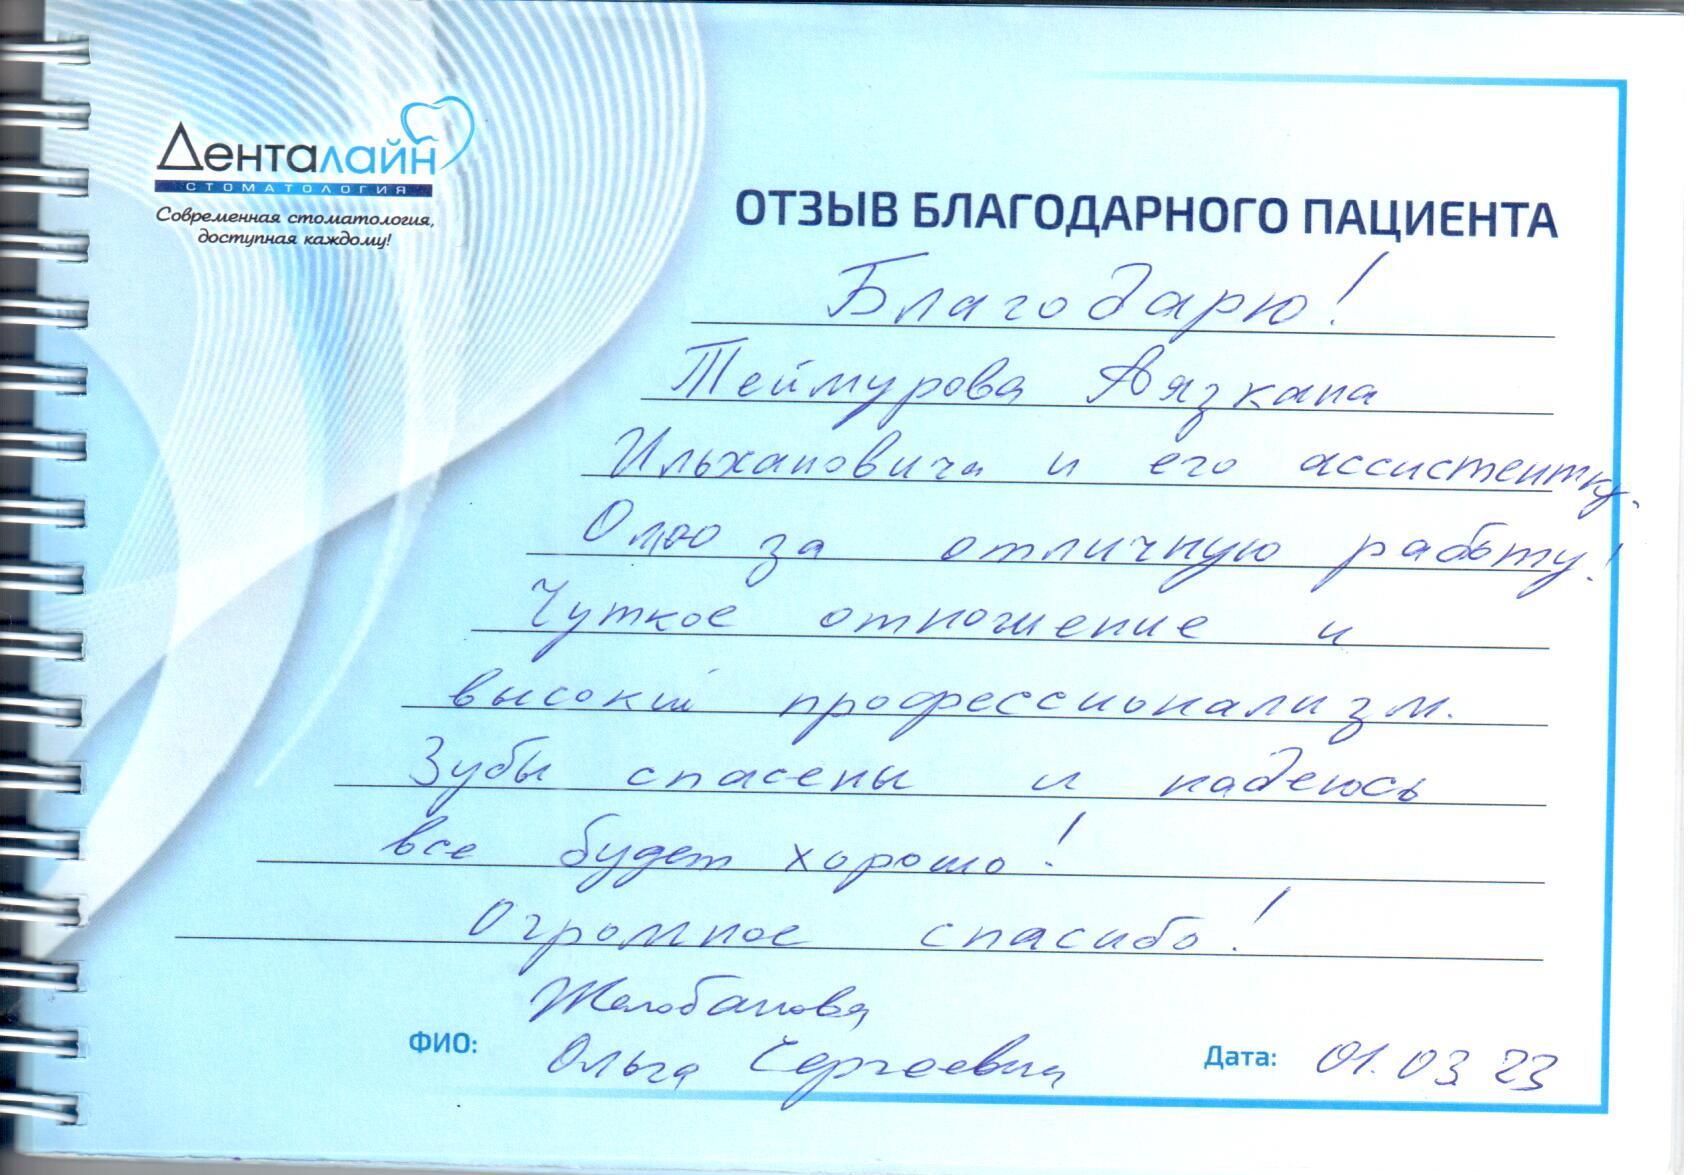 Денталайн
СТОМАТОЛОГИЯ
Современная стоматология,
доступная каждому!
ОТЗЫВ БЛАГОДАРНОГО ПАЦИЕНТА
Благодарю!
Теймурова Аязхана
Ильхановича и его ассистентку
Олю за отличную работу!
Чуткое отношение и
высокий профессионализм.
Зубы спасены и надеюсь
все будет хорошо!
Огромное спасибо!
Желобанова
ФИО: Ольга Сергеевна Дата: 01.03 23